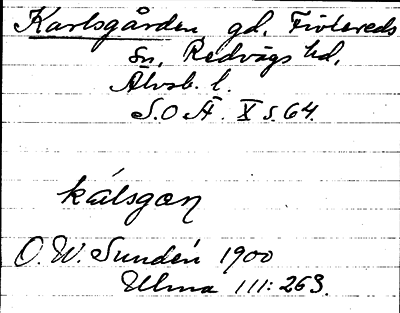 Karlsgården, gd, Fivlereds
Sn, Redvägs hd,
Älvsb. l.
S.O.Ä. X s. 64.
kálsgɑn
O. W. Sundén 1900
Ulma 111: 263.